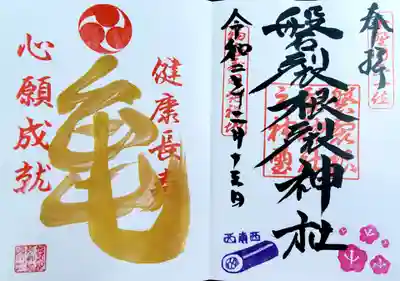 奉拝
磐裂根裂神社
令和二年十二月十三日
西南西
健康長寿
亀
心願成就